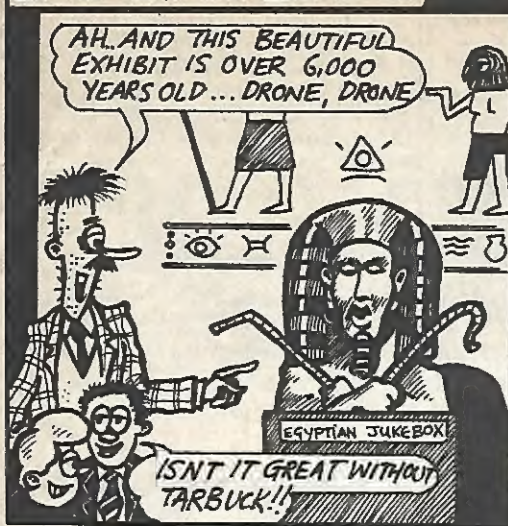 AH..AND THIS BEAUTIFUL
EXHIBIT IS OVER 6,000
YEARS OLD... DRONE, DRONE
EGYPTIAN JUKEBOX
ISNT IT GREAT WITHOUT
TARBUCK!!